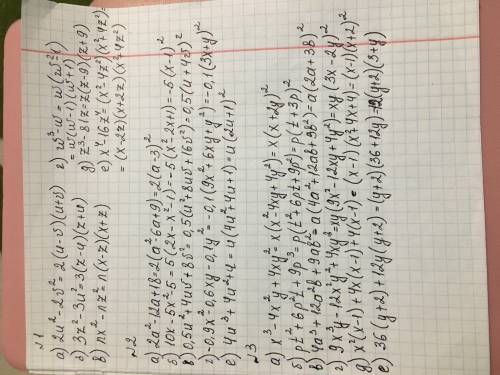 №1
а) 2u² - 2v² = 2(u-v)(u+v)
б) 3z² - 3u² = 3(z-u)(z+u)
в) nx² - nz² = n(x-z)(x+z)
г) w³ - w = w(w²-1)
= w(w-1)(w+1)
д) z³ - 81z = z(z-9)(z+9)
е) x⁴ - 16z⁴ = (x²-4z²)(x²+4z²) =
= (x-2z)(x+2z)(x²+4z²)
№2
а) 2a² - 12a + 18 = 2(a²-6a+9) = 2(a-3)²
б) 10x - 5x² - 5 = 5(2x-x²-1) = -5(x²-2x+1) = -5(x-1)²
в) 0,5u² + 4uv + 8v² = 0,5(u²+8uv+16v²) = 0,5(u+4v)²
г) -0,9x² - 0,6xy - 0,1y² = -0,1(9x²+6xy+y²) = -0,1(3x+y)²
е) 4u³ + 4u² + u = u(4u²+4u+1) = u(2u+1)²
№3
а) x³ - 4x²y + 4xy² = x(x²-4xy+4y²) = x(x+2y)²
б) pt² + 6p²t + 9p³ = p(t²+6pt+9p²) = p(t+3p)²
в) 4a³ + 12a²b + 9ab² = a(4a²+12ab+9b²) = a(2a+3b)²
г) 9x³y - 12x²y² + 4xy³ = xy(9x²-12xy+4y²) = xy(3x-2y)²
д) x²(x-1) + 4x(x-1) + 4(x-1) = (x-1)(x²+4x+4) = (x-1)(x+2)²
е) 36(y+2) + 12y(y+2) = (y+2)(36+12y) = 12(y+2)(3+y)